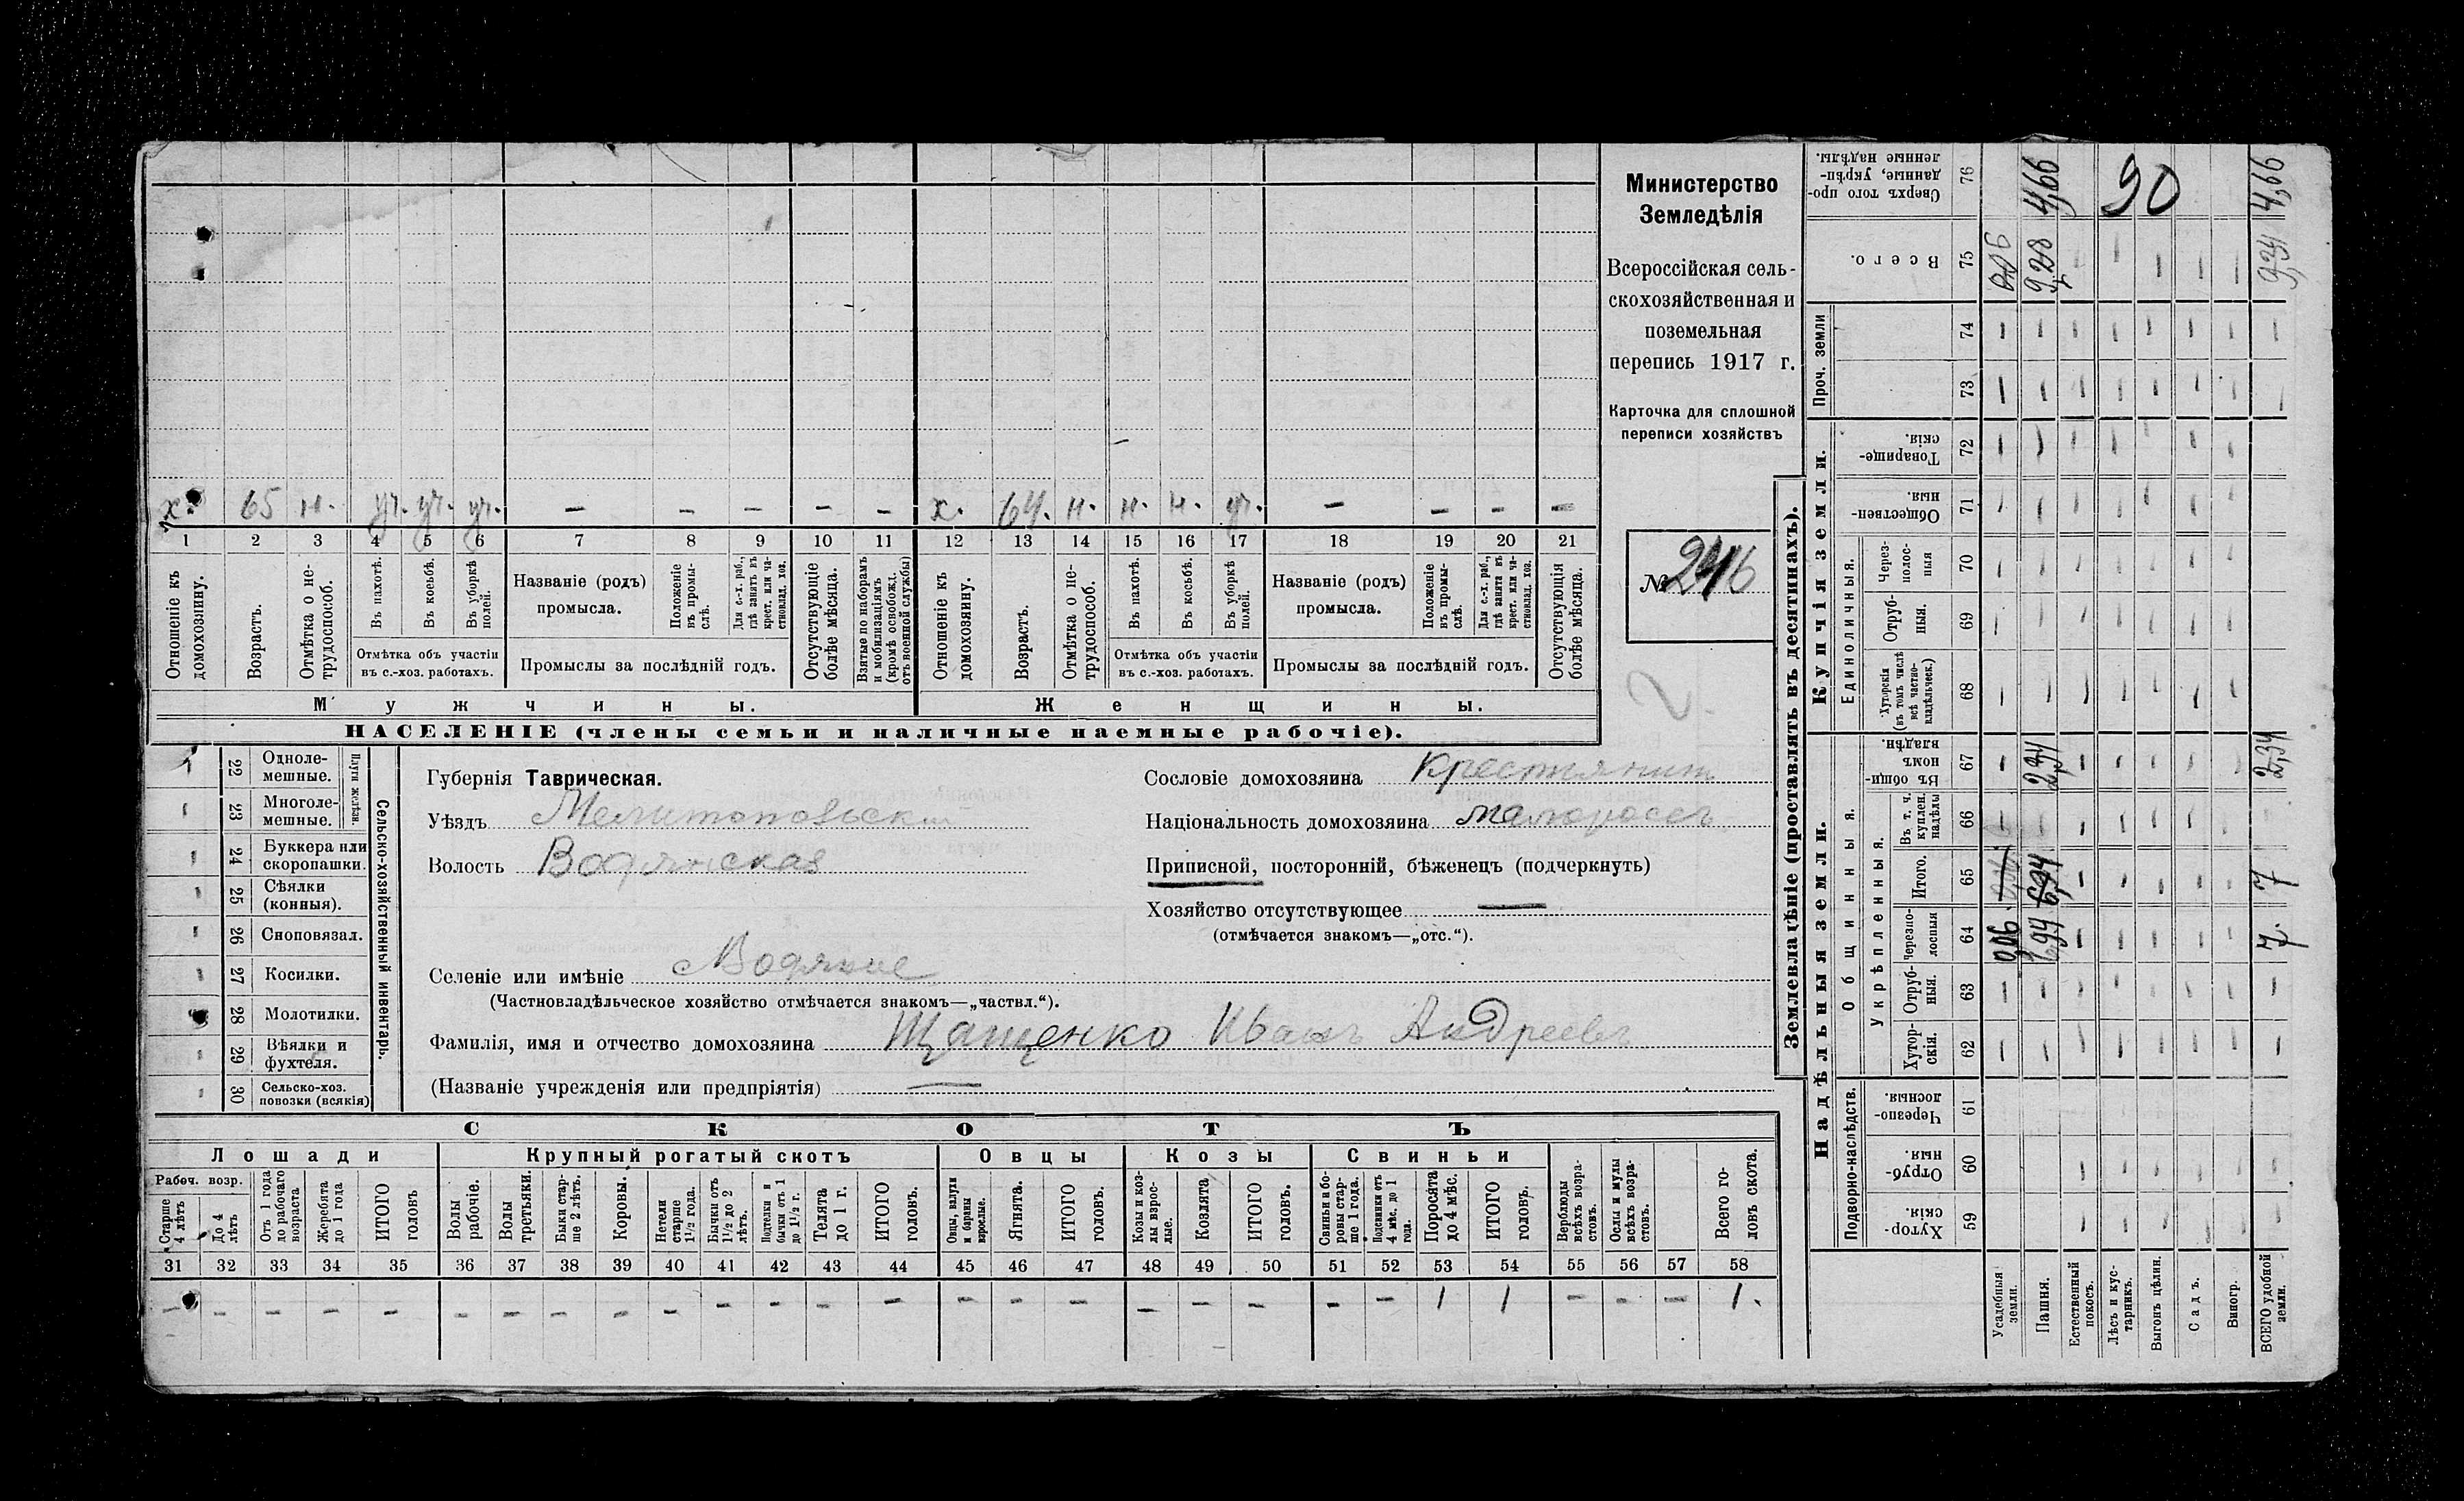 х. 65 н. уч. уч. уч. — — — — — х. 64. н. н. н. уч. — — — —
1 2 3 4 5 6 7 8 9 10 11 12 13 14 15 16 17 18 19 20 21
Отношеніе къ домохозяину.
Возрастъ.
Отмѣтка о не-
трудоспособ.
Въ пахотѣ.
Въ косьбѣ.
Въ уборкѣ
полей.
Отмѣтка объ участіи
въ с.-хоз. работахъ.
Названіе (родъ)
промысла.
Положеніе
въ промы-
слѣ.
Для с.-х. раб.,
гдѣ занятъ въ
крест. или ча-
стновлад. хоз.
Промыслы за послѣдній годъ.
Отсутствующіе
болѣе мѣсяца.
Взятые по наборамъ
и мобилизаціямъ
(кромѣ освобожд.
отъ военной службы)
Отношеніе къ
домохозяину.
Возрастъ.
Отмѣтка о не-
трудоспособ.
Въ пахотѣ.
Въ косьбѣ.
Въ уборкѣ
полей.
Отмѣтка объ участіи
въ с.-хоз. работахъ.
Названіе (родъ)
промысла.
Положеніе
въ промы-
слѣ.
Для с.-х. раб.,
гдѣ занята въ
крест. или ча-
стновлад. хоз.
Промыслы за послѣдній годъ.
Отсутствующія
болѣе мѣсяца.
Мужчины.
Женщины.
НАСЕЛЕНІЕ (члены семьи и наличные наемные рабочіе).
Министерство
Земледѣлія
Всероссійская сель-
скохозяйственная и
поземельная
перепись 1917 г.
Карточка для сплошной
переписи хозяйствъ
№ 246
2
22 Одноле-
мешные.
23 Многоле-
мешные.
Плуги желѣзн.
24 Буккера или
скоропашки.
25 Сѣялки
(конныя).
26 Сноповязал.
27 Косилки.
28 Молотилки.
29 Вѣялки и
фухтеля.
30 Сельско-хоз.
повозки (всякія)
Сельско-хозяйственный инвентарь.
Губернія Таврическая.
Уѣздъ Мелитопольскій
Волость Водянская
Селеніе или имѣніе Водяное
(Частновладѣльческое хозяйство отмѣчается знакомъ—„частвл.“).
Фамилія, имя и отчество домохозяина Щащенко Иванъ Андреевъ
(Названіе учрежденія или предпріятія) —
Сословіе домохозяина Крестьянинъ
Національность домохозяина малороссъ
Приписной, посторонній, бѣженецъ (подчеркнуть)
Хозяйство отсутствующее —
(отмѣчается знакомъ—„отс.“).
СКОТЪ
Лошади
Крупный рогатый скотъ
Овцы
Козы
Свиньи
Рабоч. возр.
Старше
4 лѣтъ
До 4
лѣтъ
Отъ 1 года
до рабочаго
возраста
Жеребята
до 1 года
ИТОГО
головъ
Волы
рабочіе.
Волы
третьяки.
Быки стар-
ше 2 лѣтъ.
Коровы.
Нетели
старше
1 1/2 года.
Бычки отъ
1 1/2 до 2
лѣтъ.
Подтелки и
бычки отъ 1
до 1 1/2 г.
Телята
до 1 г.
ИТОГО
головъ.
Овцы, валухи
и бараны
взрослые.
Ягнята.
ИТОГО
головъ.
Козы и коз-
лы взрос-
лые.
Козлята
ИТОГО
головъ.
Свиньи и бо-
ровы стар-
ше 1 года.
Подсвинки отъ
4 мѣс. до 1
года.
Поросята
до 4 мѣс.
ИТОГО
головъ.
Верблюды
всѣхъ возра-
стовъ.
Ослы и мулы
всѣхъ возра-
стовъ.
Всего го-
ловъ скота.
31 32 33 34 35 36 37 38 39 40 41 42 43 44 45 46 47 48 49 50 51 52 53 54 55 56 57 58
— — — — — — — — — — — — — — — — — — — — — — 1 1 — — — 1.
Землевладѣніе (проставлять въ десятинахъ).
Купчія земли.
Надѣльныя земли.
Сверхъ того про-
данные, укрѣп-
ленные надѣлы. 76 4,66 90 4,66
Всего. 75 0,06 9,28 9,34
Проч. земли
74
73
Товарище-
скія. 72
Обществен-
ныя. 71
Единоличныя.
Через-
полос-
ныя 70
Отруб-
ныя. 69
Хуторскія
(въ томъ числѣ
всѣ частно-
владѣльческ.) 68
Общинныя.
Въ общин-
номъ
владѣн. 67 2,34 2,34
Укрѣпленныя.
Въ т. ч.
куплен.
надѣлы 66
Итого. 65 0,06 6,94 7
Черезпо-
лосныя 64 0,06 6,94 7.
Отруб-
ныя. 63
Хутор-
скія. 62
Подворно-наслѣдств.
Черезпо-
лосныя 61
Отруб-
ныя. 60
Хутор-
скія. 59
Усадебныя
земли.
Пашня.
Естественный
покосъ.
Лѣсъ и кус-
тарникъ.
Выгонъ цѣлин.
Садъ.
Виногр.
ВСЕГО удобной
земли.